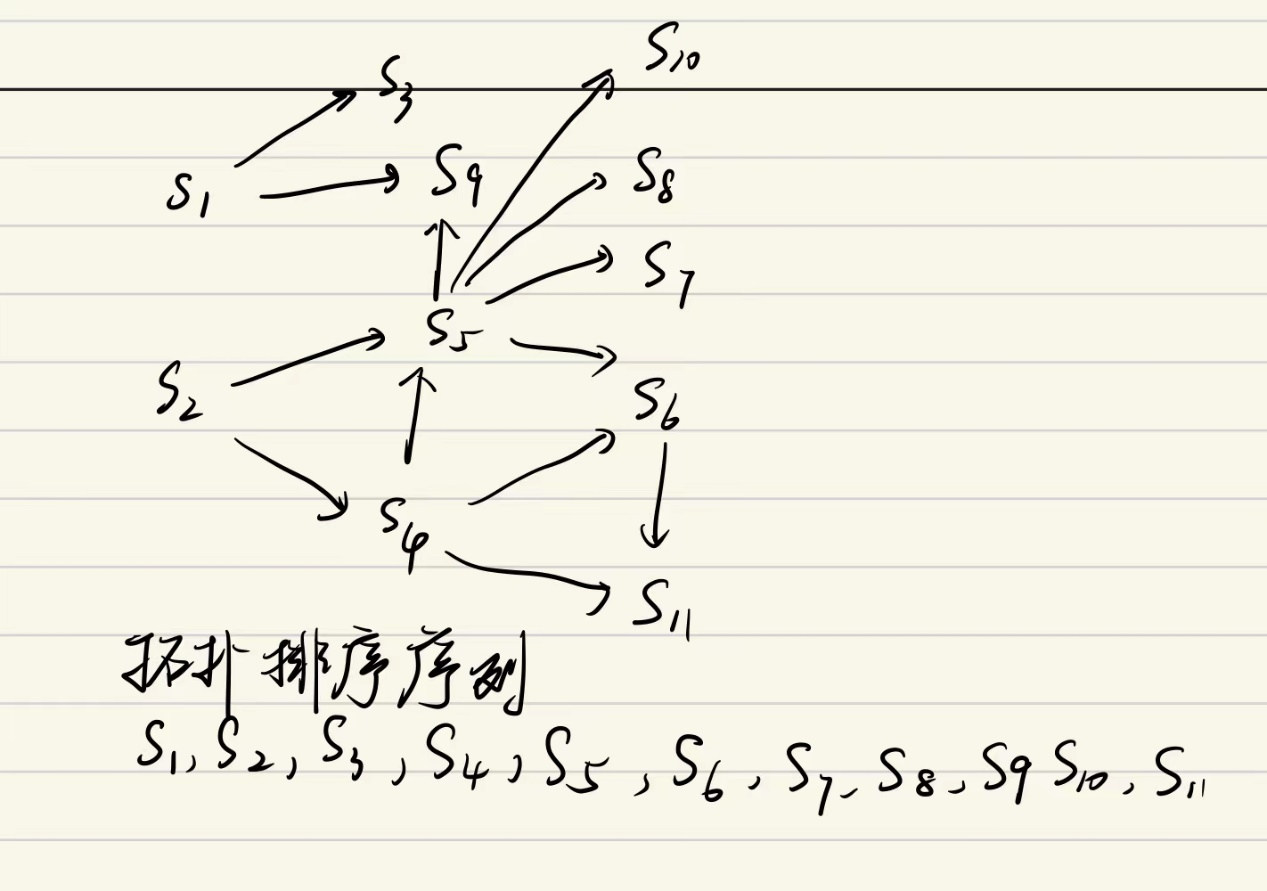 S10
S3
S9
S8
S1
S7
S5
S2
S6
S4
S11
拓扑排序序列
S1, S2, S3, S4, S5, S6, S7, S8, S9 S10, S11